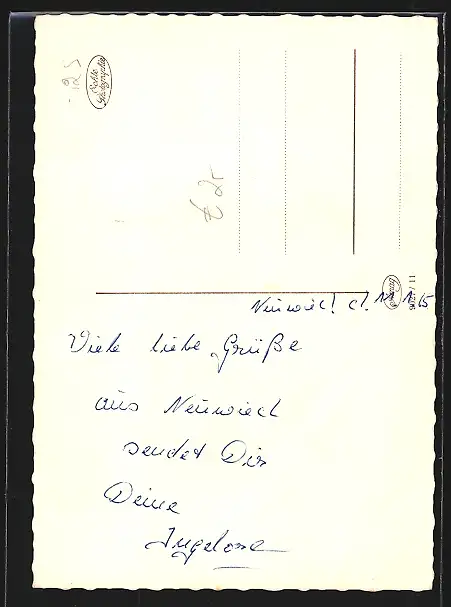 Echte
Photographie
€ 2,-
Neuwied, d.
Viele liebe Grüße
aus Neuwied
sendet Dir
Deine
Ingelore